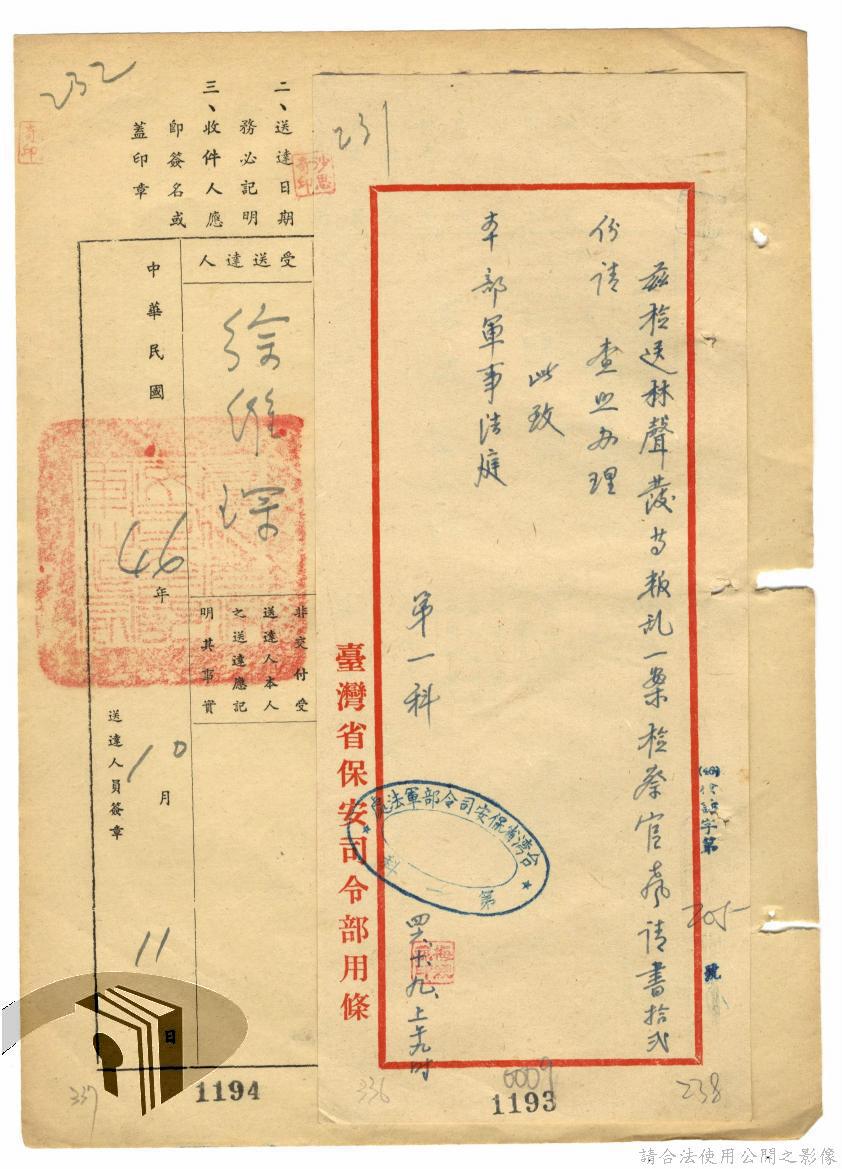 231
茲檢送林聲發等叛乱一案檢察官聲請書拾貳
份請 查照办理
此致
本部軍事法庭
第一科
四六、十、九、上午九时
臺灣省保安司令部用條
台灣省保安司令部軍法處
第一科
字第
205
號
6009
1193
336
238
232
二、送達日期
務必記明
三、收件人應
即簽名或
蓋印章
受送達人
徐維琛
非交付受
送達人本人
之送達應記
明其事實
中華民國
46年
10月
11日
送達人員簽章
1194
337
請合法使用公開之影像